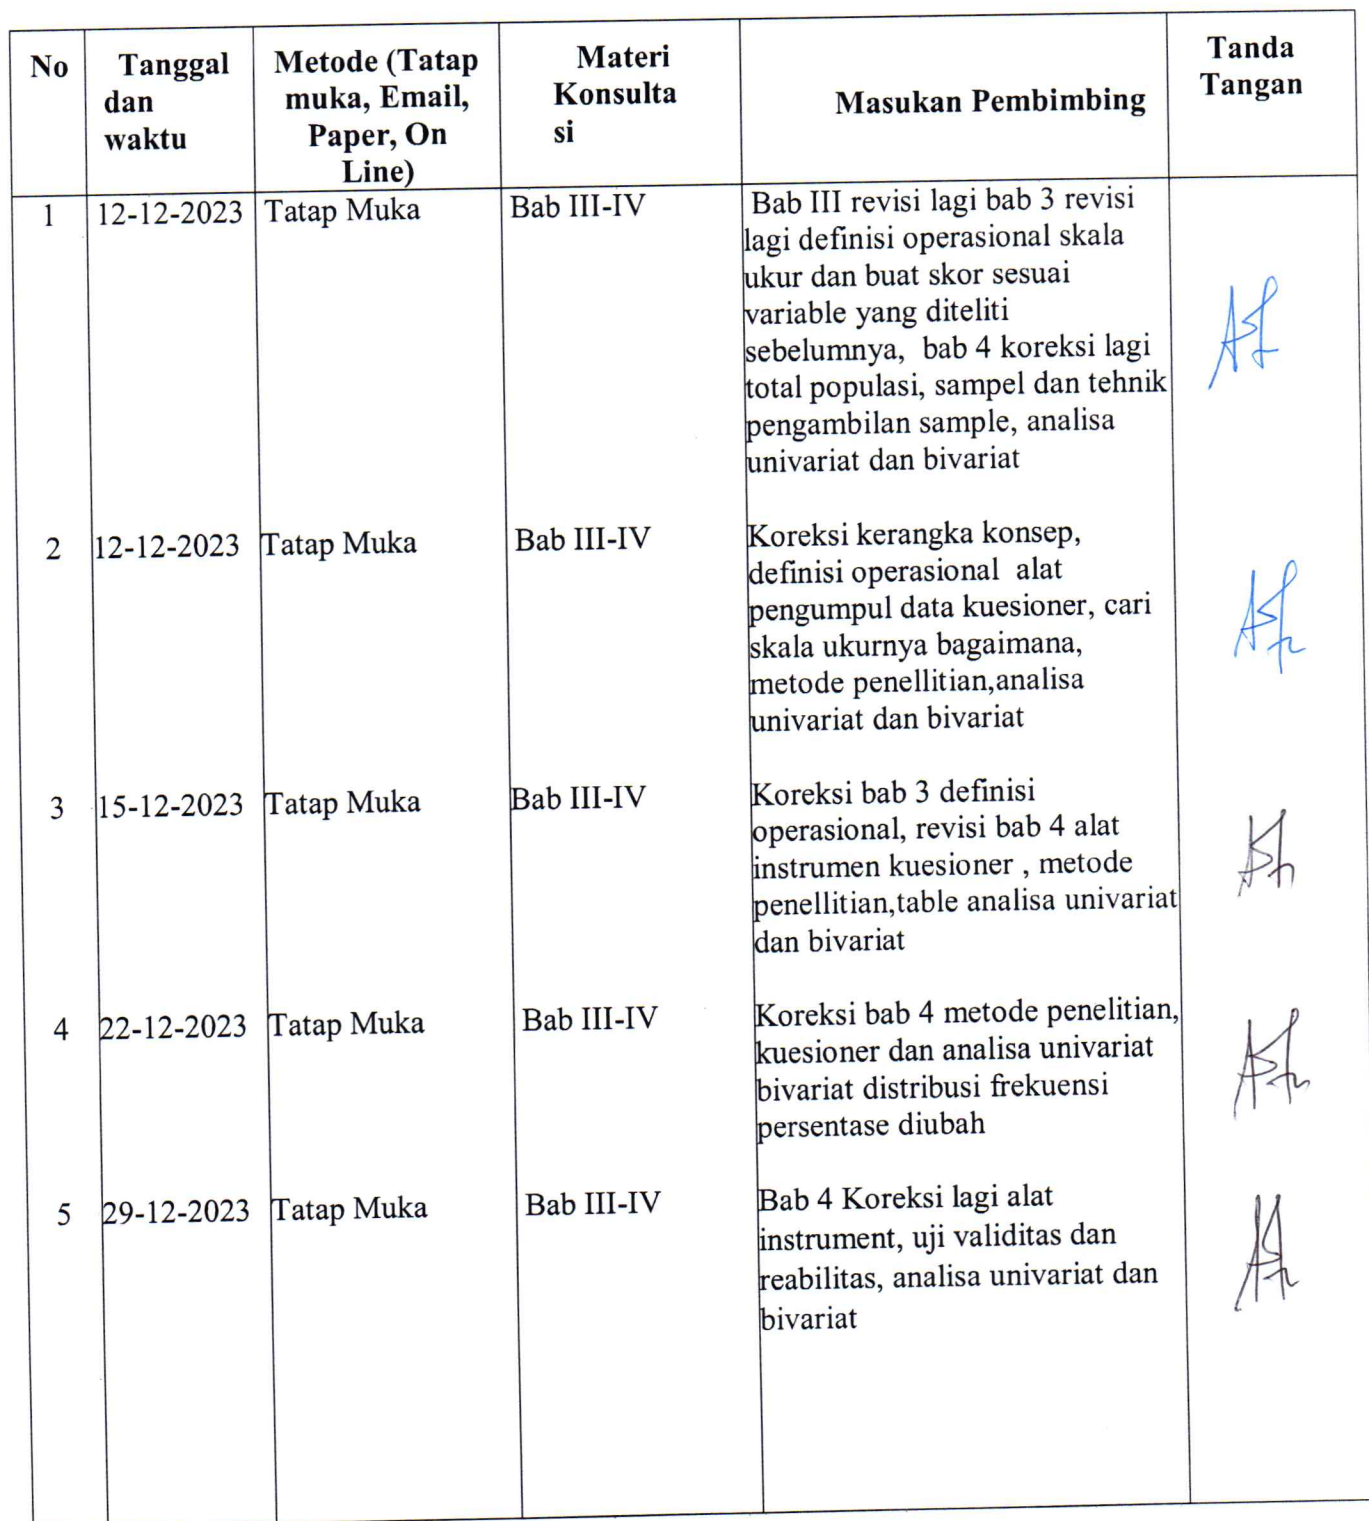 No
Tanggal
dan
waktu
Metode (Tatap
muka, Email,
Paper, On
Line)
Materi
Konsulta
si
Masukan Pembimbing
Tanda
Tangan
1
12-12-2023
Tatap Muka
Bab III-IV
Bab III revisi lagi bab 3 revisi
lagi definisi operasional skala
ukur dan buat skor sesuai
variable yang diteliti
sebelumnya, bab 4 koreksi lagi
total populasi, sampel dan tehnik
pengambilan sample, analisa
univariat dan bivariat
2
12-12-2023
Tatap Muka
Bab III-IV
Koreksi kerangka konsep,
definisi operasional alat
pengumpul data kuesioner, cari
skala ukurnya bagaimana,
metode penellitian,analisa
univariat dan bivariat
3
15-12-2023
Tatap Muka
Bab III-IV
Koreksi bab 3 definisi
operasional, revisi bab 4 alat
instrumen kuesioner , metode
penellitian,table analisa univariat
dan bivariat
4
22-12-2023
Tatap Muka
Bab III-IV
Koreksi bab 4 metode penelitian,
kuesioner dan analisa univariat
bivariat distribusi frekuensi
persentase diubah
5
29-12-2023
Tatap Muka
Bab III-IV
Bab 4 Koreksi lagi alat
instrument, uji validitas dan
reabilitas, analisa univariat dan
bivariat